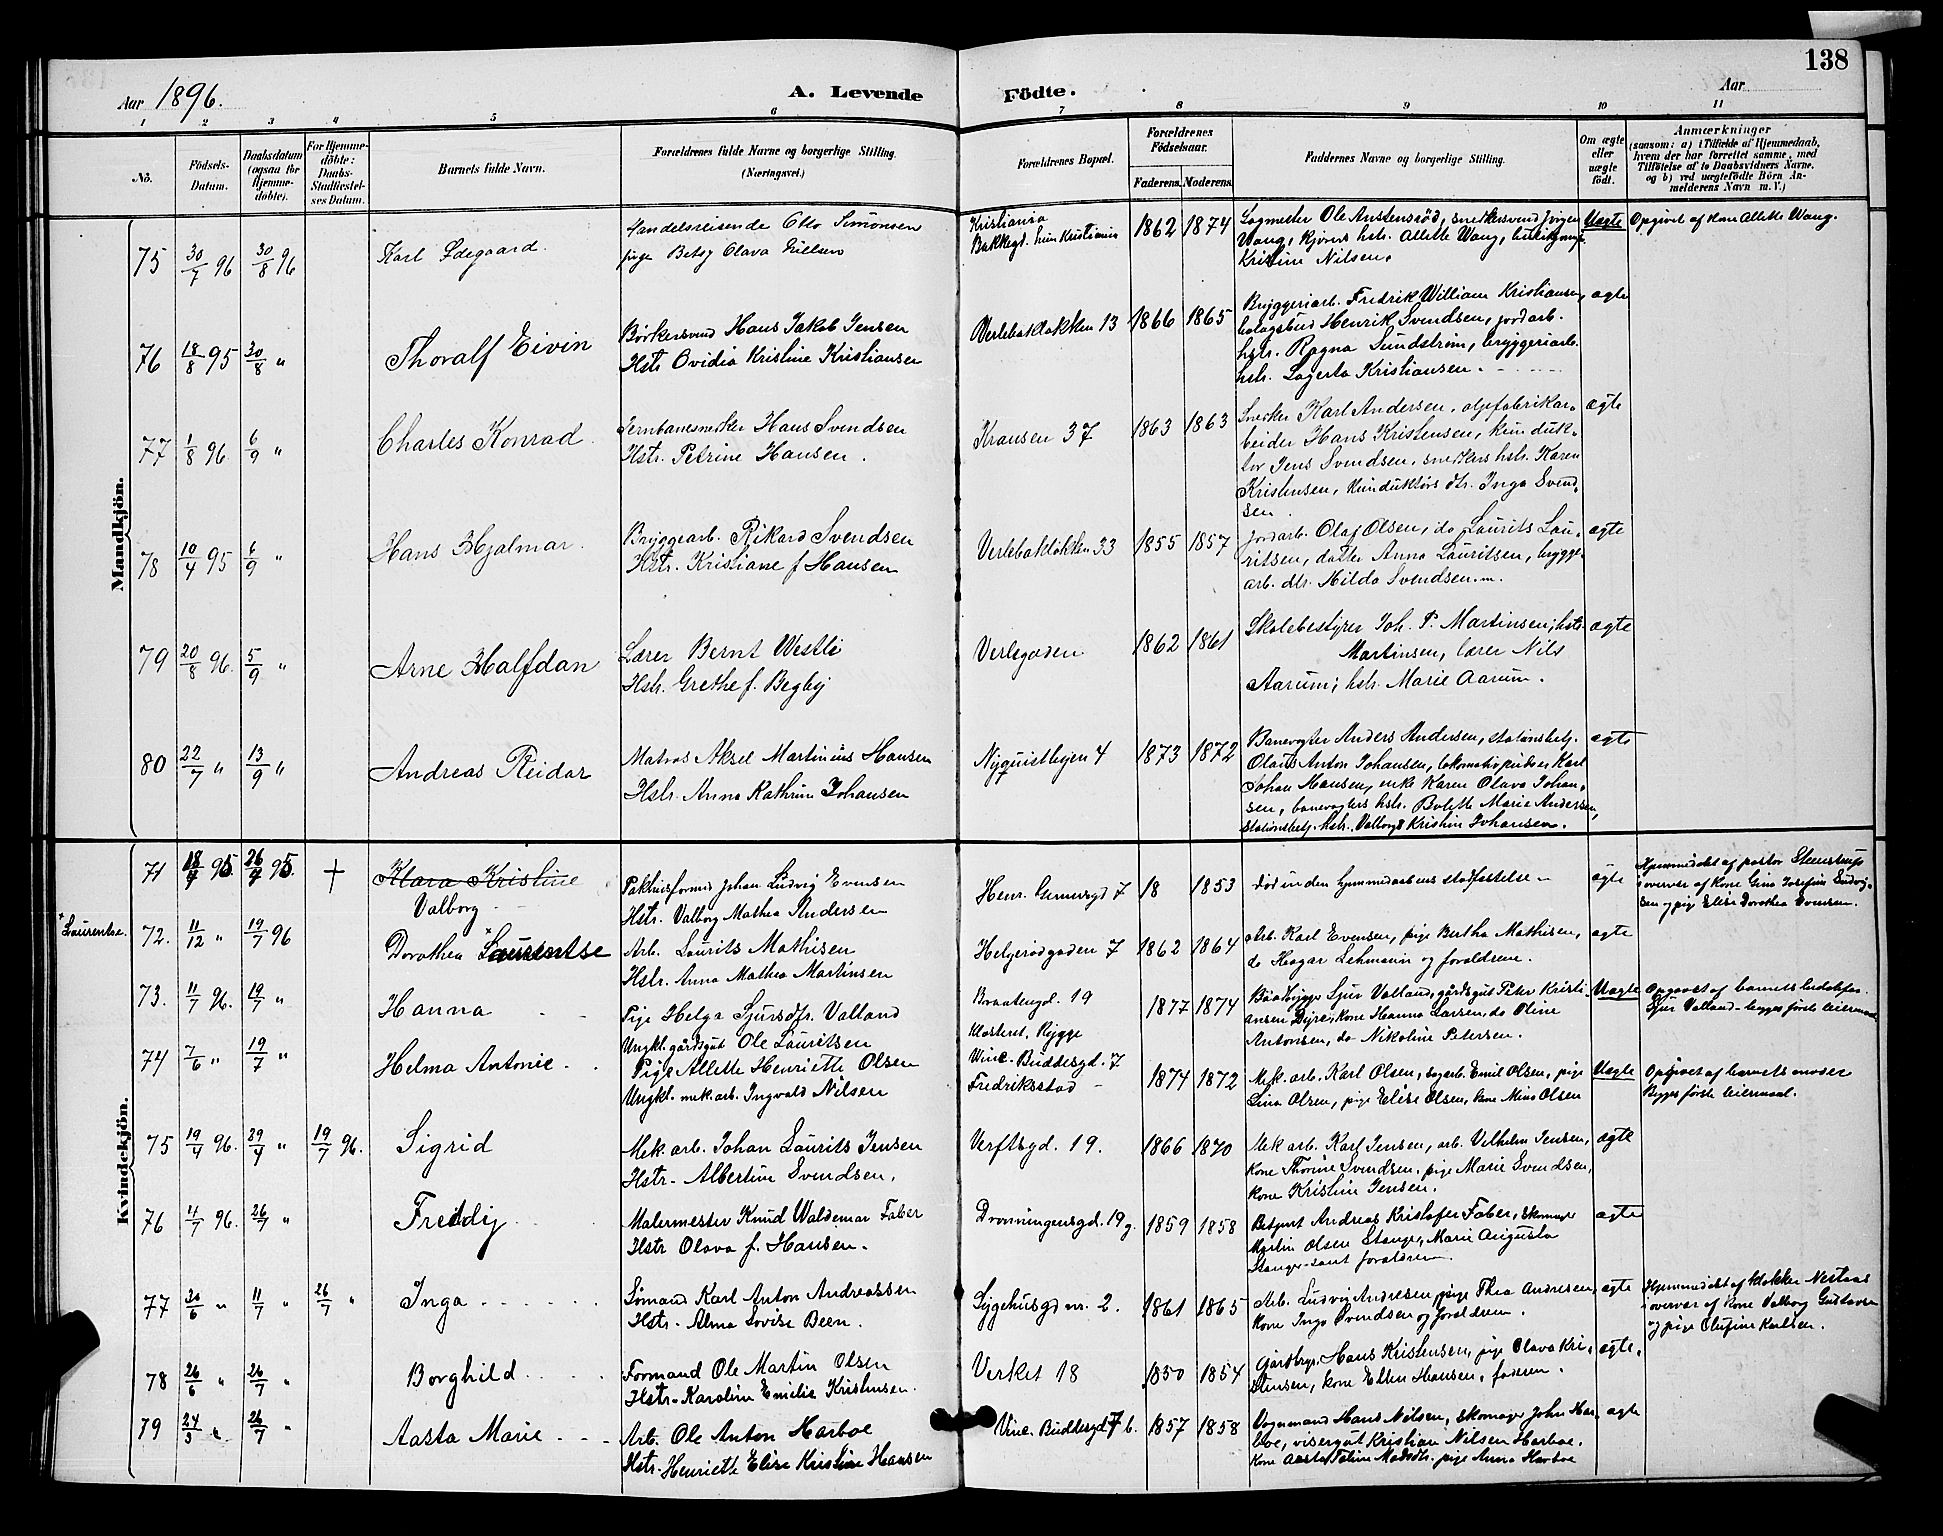 138
Aar 1896.
A. Levende
Födte.
Aar
1 2 3 4 5 6 7 8 9 10 11
No.
Födsels-Datum.
Daabsdatum (ogsaa for Hjemme-döbte).
For Hjemme-döbte: Daabs-Stadfæstel-ses Datum.
Barnets fulde Navn.
Forældrenes fulde Navne og borgerlige Stilling. (Næringsvei.)
Forældrenes Bopæl.
Forældrenes Födselsaar.
Faderens. Moderens.
Faddernes Navne og borgerlige Stilling.
Om ægte eller uægte födt.
Anmærkninger
(saasom: a) i Tilfælde af Hjemmedaab,
hvem der har forrettet samme, med
Tilföielse af to Daabsvidners Navne.
og b) ved uægtefödte Börn An-
melderens Navn m. V.)
Mandkjön.
75 30/7 96 30/8 96 Karl Ødegaard.
Handelsreisende Otto Simonsen
pige Betsy Olava Nielsen
Kristiania
Bakkegt. hun Kristiania
1862 1874
Sagmester Ole Austensröd, snedkersvend Jörgen
Wang, kjörers hstr. Allette Wang,
Kristine Nilsen.
Uægte
Opgivet af kone Allette Wang.
76 18/8 95 30/8 " Thoralf Eivin
Bödkersvend Hans Jakob Jensen
Hstr Ovidia Kristine Kristiansen
Værlebakløkken 13
1866 1865
Bryggeriarb. Fredrik William Kristiansen,
bolagsbud Henrik Svendsen, jordarb.
hstr. Ragna Sundström, bryggeriarb.
hstr. Lagerta Kristiansen.
ægte
77 1/8 96 6/9 " Charles Konrad.
Jernbanesnedker Hans Svendsen
Hstr. Petrine Hansen.
Kransen 37
1863 1863
Snecker Karl Andersen, oljefabrikar-
beider Hans Kristensen, konduk-
tör Jens Svendsen, snedkers hstr. Karen
Kristensen, konduktörs dtr. Inga Svend-
sen.
ægte
78 10/4 95 6/9 " Hans Hjalmar.
Bryggearb. Rikard Svendsen
Hstr. Kristiane f Hansen
Værlebakløkken 33
1855 1857
Jordarb. Olaf Olsen, do Laurits Lau-
ritsen, datter Anna Lauritsen, brygge-
arb. dtr. Hilda Svendsen.
ægte
79 20/8 96. 5/9 " Arne Halfdan
Lærer Bernt Westli
Hstr. Grethe f. Begby
Værlegaden
1862 1861
Skolebestyrer Joh. P. Martinsen, hstr.
Martinsen, lærer Nils
Aarum, hstr. Marie Aarum.
ægte
80 22/7 " 13/9 " Andreas Reidar
Matros Aksel Martinius Hansen
Hstr. Anna Kathrine Johansen
Nyquistbyen 4
1873 1872
Banevogter Anders Andersen, stationsbetj.
Olaus Anton Johansen, lokomotivpudser Karl
Johan Hansen, enke Karen Olava Johan-
sen, banevogters hstr. Bolette Marie Andersen,
stationsbetj. hstr. Valborg Kristine Johansen.
ægte
Kvindekjön.
71 95 95. + Klara Kristine
Valborg
Pakhusformd Johan Ludvig Evensen
Hstr. Valborg Mathea Andersen
Henr. Gernersgd 7
18 1853
Död inden hjemmedaabens stadfæstelse
ægte
Hjemmedöbt af pastor Steenstrup
i overvær af kone Gina Josefine Ludvig-
sen og pige Elise Dorothea Evensen.
+ Laurentse.
72. 11/12 " 19/7 96 Dorothea + Laurentse
Arb. Laurits Mathisen
Hstr. Anna Mathea Martinsen
Helgerödgaden 7
1862 1864
Arb. Karl Evensen, pige Bertha Mathisen,
do Hagar Lehmann og forældrene.
ægte
73. 11/7 96. 19/7 " Hanna
Pige Helga Sjursdtr. Valland
Ungkl. gårdsgut Ole Lauritsen
Braatengd. 19
Klosteret, Rygge
1877 1874
Baadbygger Sjur Valland, gårdsgut Peter Kristi-
ansen Dyre, kone Hanna Larsen, do Oline
Antonsen, do Nikoline Petersen.
Uægte
Opgivet af barnets bedstefar
Sjur Valland. begges förste leiermaal
74 7/6 " 19/7 " Helma Antonie
Pige Allette Henriette Olsen
Ungkl. mek. arb. Ingvald Nilsen
Vinc. Buddesgd. 7
Fredriksstad
1874 1872
Mek. arb. Karl Olsen, sagarb. Emil Olsen, pige
Lina Olsen, pige Elise Olsen, kone Mina Olsen
Uægte
Opgivet af barnets moder
Begges förste leiermaal.
75 19/4 96. 29/4 " 19/7 96. Sigrid
Mek. arb. Johan Laurits Jensen
Hstr. Albertine Svendsen.
Verftsgd. 19.
1866 1870
Mek arb. Karl Jensen, arb. Vilhelm Jensen,
kone Thorine Svendsen, pige Marie Svendsen,
kone Kristine Jensen.
ægte
76 4/7 96. 26/7 " Freddy
Malermester Knud Waldemar Faber
Hstr Olava f. Hansen.
Dronningensgd. 19 g.
1859 1858
Betjent Andreas Kristofer Faber, skomager
Martin Olsen Stange, Marie Augusta
Stange samt forældrene
ægte
77 30/6 " 11/7 " 26/7 " Inga
Sömand Karl Anton Andreassen
Hstr. Alma Lovise Been.
Sygehusgd nr. 2.
1861 1865
Arb. Ludvig Andresen, pige Thea Andresen,
kone Inga Svendsen og forældrene.
ægte
Hjemmedöbt af klokker Nestaas
i overvær af kone Valborg Gustavsen
og pige Olufine Karlsen.
78 26/6 " 26/7 " Borghild
Formand Ole Martin Olsen
Hstr. Karoline Emilie Kristensen.
Verket 18
1850 1854
Gårdbrgr. Hans Kristensen, pige Olava Kri-
stensen, kone Ellen Hansen, faderen.
ægte.
79 24/3 " 26/7 " Aasta Marie
Arb. Ole Anton Harboe
Hstr. Henriette Elise Kristine Hansen
Vinc. Buddesgd 7 b.
1857 1858
Vognmand Hans Nilsen, skomager John Har-
boe, visergut Kristian Nilsen Harboe,
kone Aasta Taline Madsdtr. pige Anna Harboe
ægte